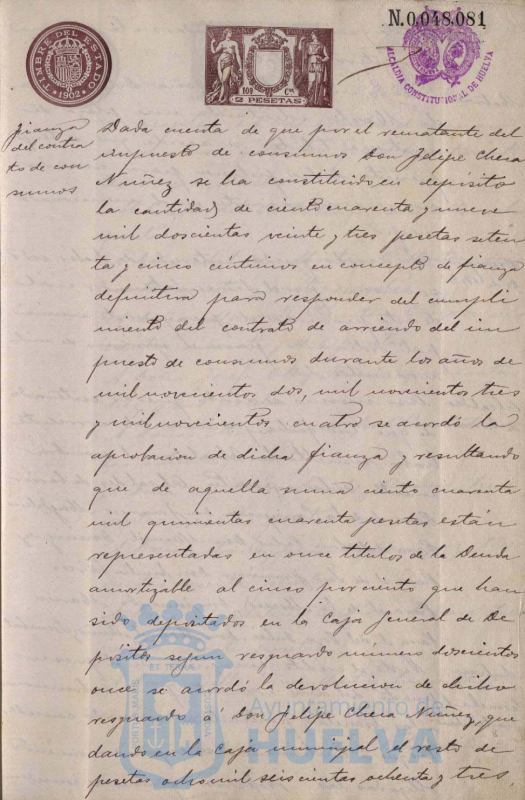 N.0,048,081
TIMBRE DEL ESTADO
1902
100 Cs
2 PESETAS
ALCALDIA CONSTITUCIONAL DE HUELVA
fianza
del contra
to de con
sumos
Dada cuenta de que por el rematante del
impuesto de consumos Don Felipe Chera
Nuñez se ha constituido en depósito
la cantidad de ciento cuarenta y nueve
mil doscientas veinte y tres pesetas seten
ta y cinco céntimos en concepto de fianza
definitiva para responder del cumpli
miento del contrato de arriendo del im
puesto de consumos durante los años de
mil novecientos dos, mil novecientos tres
y mil novecientos cuatro se acordó la
aprobacion de dicha fianza y resultando
que de aquella suma ciento cuarenta
mil quinientas cuarenta pesetas están
representadas en once títulos de la Deuda
amortizable al cinco por ciento que han
sido depositados en la Caja General de De
pósitos segun resguardo número doscientos
once se acordó la devolucion de dicho
resguardo á Don Felipe Chera Nuñez, que
dando en la Caja municipal el resto de
pesetas ocho mil seiscientas ochenta y tres,
PORTUS MARIS ET TERRÆ CUSTODIA
Ayuntamiento de
HUELVA